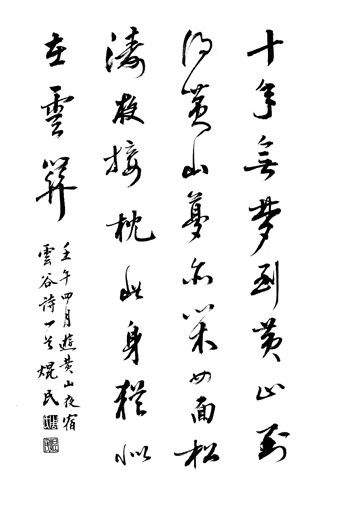 十年無夢到黃山到
得黃山夢亦閑四面松
濤接枕此身似
在雲
壬午四月遊黃山夜宿
雲谷詩一首焜民